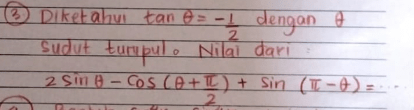 ③ Diketahui tan θ = -1/2 dengan θ
sudut tumpul. Nilai dari :
2 sin θ - cos (θ + π/2) + sin (π - θ) = ...